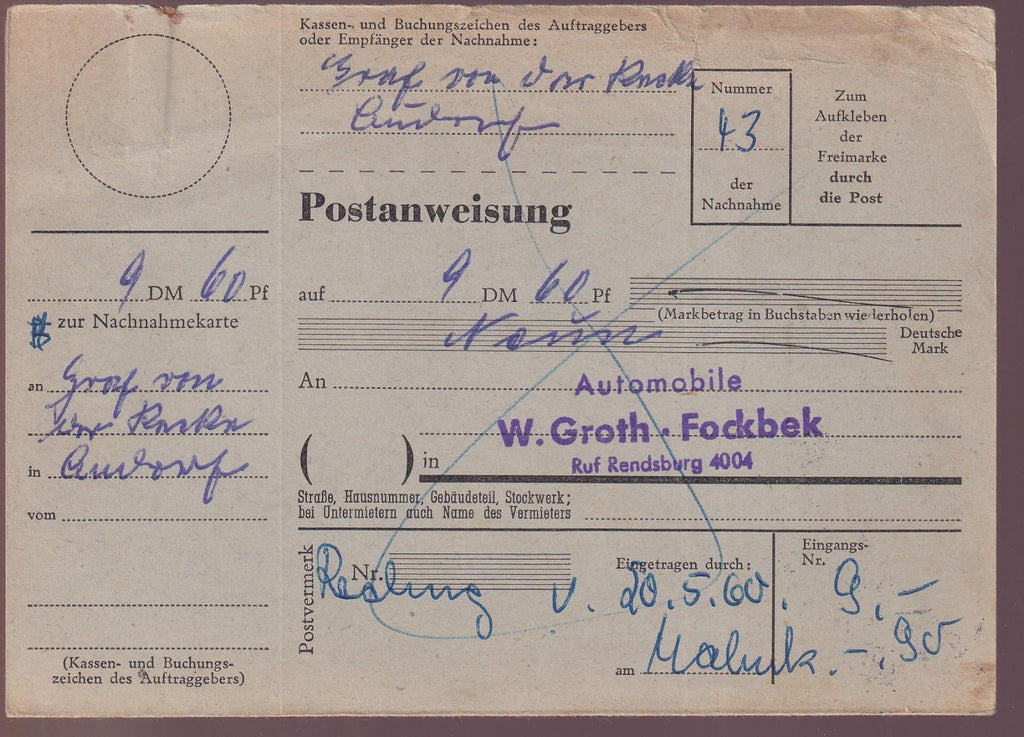 Kassen- und Buchungszeichen des Auftraggebers
oder Empfänger der Nachnahme:
Graf von der Recke
Audorf
Nummer
43
der
Nachnahme
Zum
Aufkleben
der
Freimarke
durch
die Post
Postanweisung
9 DM 60 Pf
zur Nachnahmekarte
an Graf von
der Recke
in Audorf
vom
(Kassen- und Buchungs-
zeichen des Auftraggebers)
auf 9 DM 60 Pf
(Markbetrag in Buchstaben wiederholen)
Neun
Deutsche
Mark
An
Automobile
W. Groth · Fockbek
( ) in
Ruf Rendsburg 4004
Straße, Hausnummer, Gebäudeteil, Stockwerk;
bei Untermietern auch Name des Vermieters
Postvermerk
Nr.
Eingetragen durch:
Eingangs-
Nr.
v. 20.5.60. 9,-
am
-,90